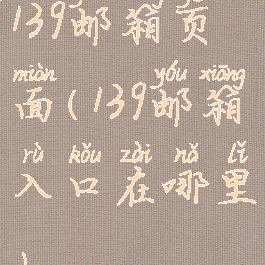 139邮箱页
miàn yóu xiāng
面(139邮箱
rù kǒu zài nǎ lǐ
入口在哪里
)